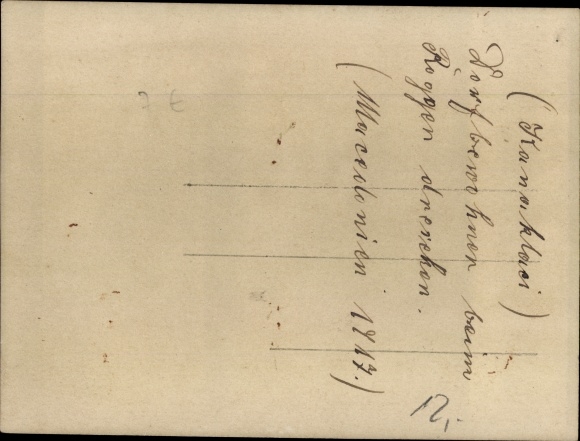 (Kanaklaci)
Dorfbewohner beim
Roggen dreschen.
(Macedonien 1917.)
12,